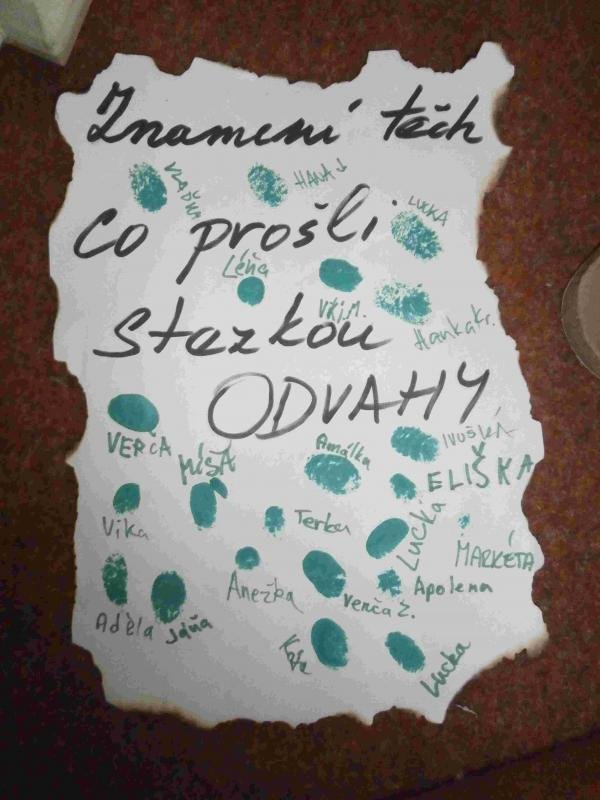 Znamení těch
VLAĎKA
HANA J
co prošli
LUCKA
Léňa
VIKI.M.
stezkou
Hanka Kr.
ODVAHY
VERČA
MÍŠA
Amálka
IVUŠKA
ELIŠKA
Vika
Terka
Lucka
MARKÉTA
Anežka
Verča Z.
Apolena
Adéla
Jáňa
Lucka